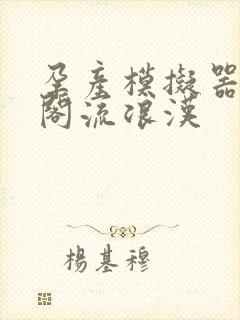 孕産模擬器
閣流浪漢
楊基穆